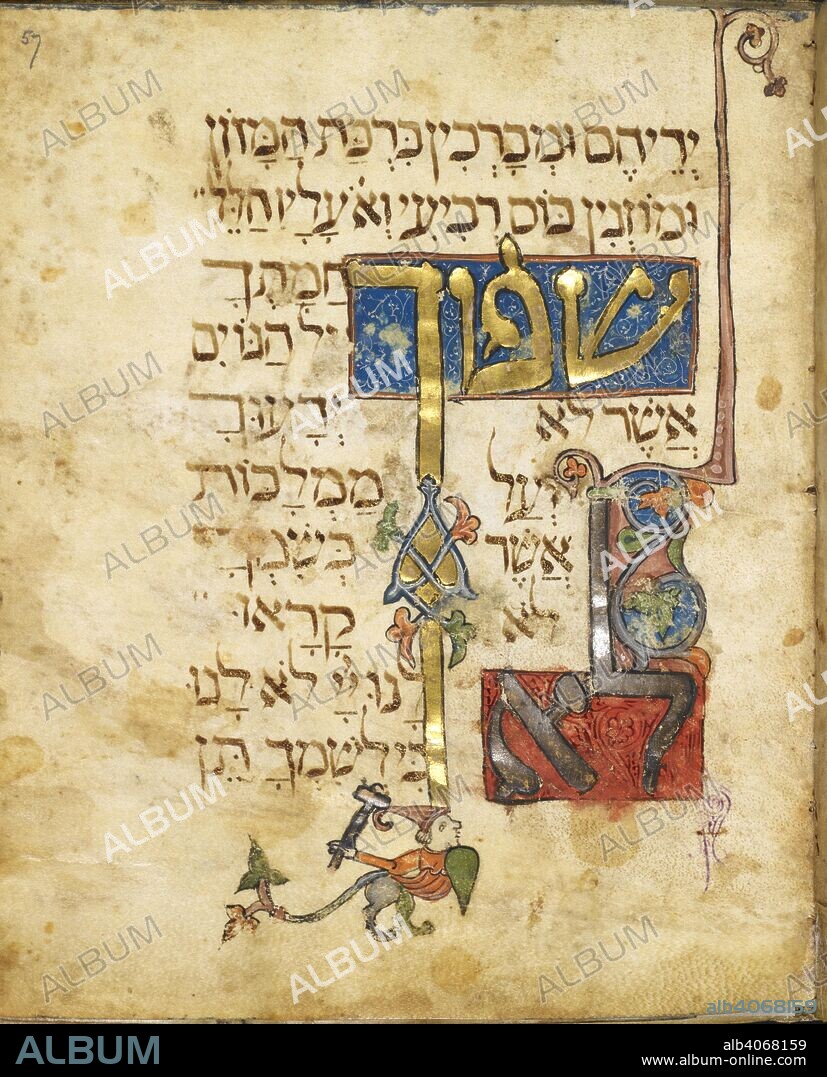 57
יְדֵיהֶם וּמְבָרְכִין בִּרְכַּת הַמָּזוֹן
וּמוֹזְגִין כּוֹס רְבִיעִי וְאֹ' עָלָיו הַלֵּל
שפוך חֲמָתְךָ
אל הַגּוֹיִם
אֲשֶׁר לֹא יְדָעוּךָ
וְעַל מַמְלָכוֹת
אֲשֶׁר בְּשִׁמְךָ
לֹא קָרָאוּ
לא לָנוּ יְיָ לֹא לָנוּ
כִּי לְשִׁמְךָ תֵּן
alb4068159
ALBUM
alb4068159
www.album-online.com